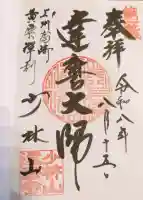 奉拝
令和八年
八月十五日
達磨大師
上州高崎
黄檗禅刹
少林山